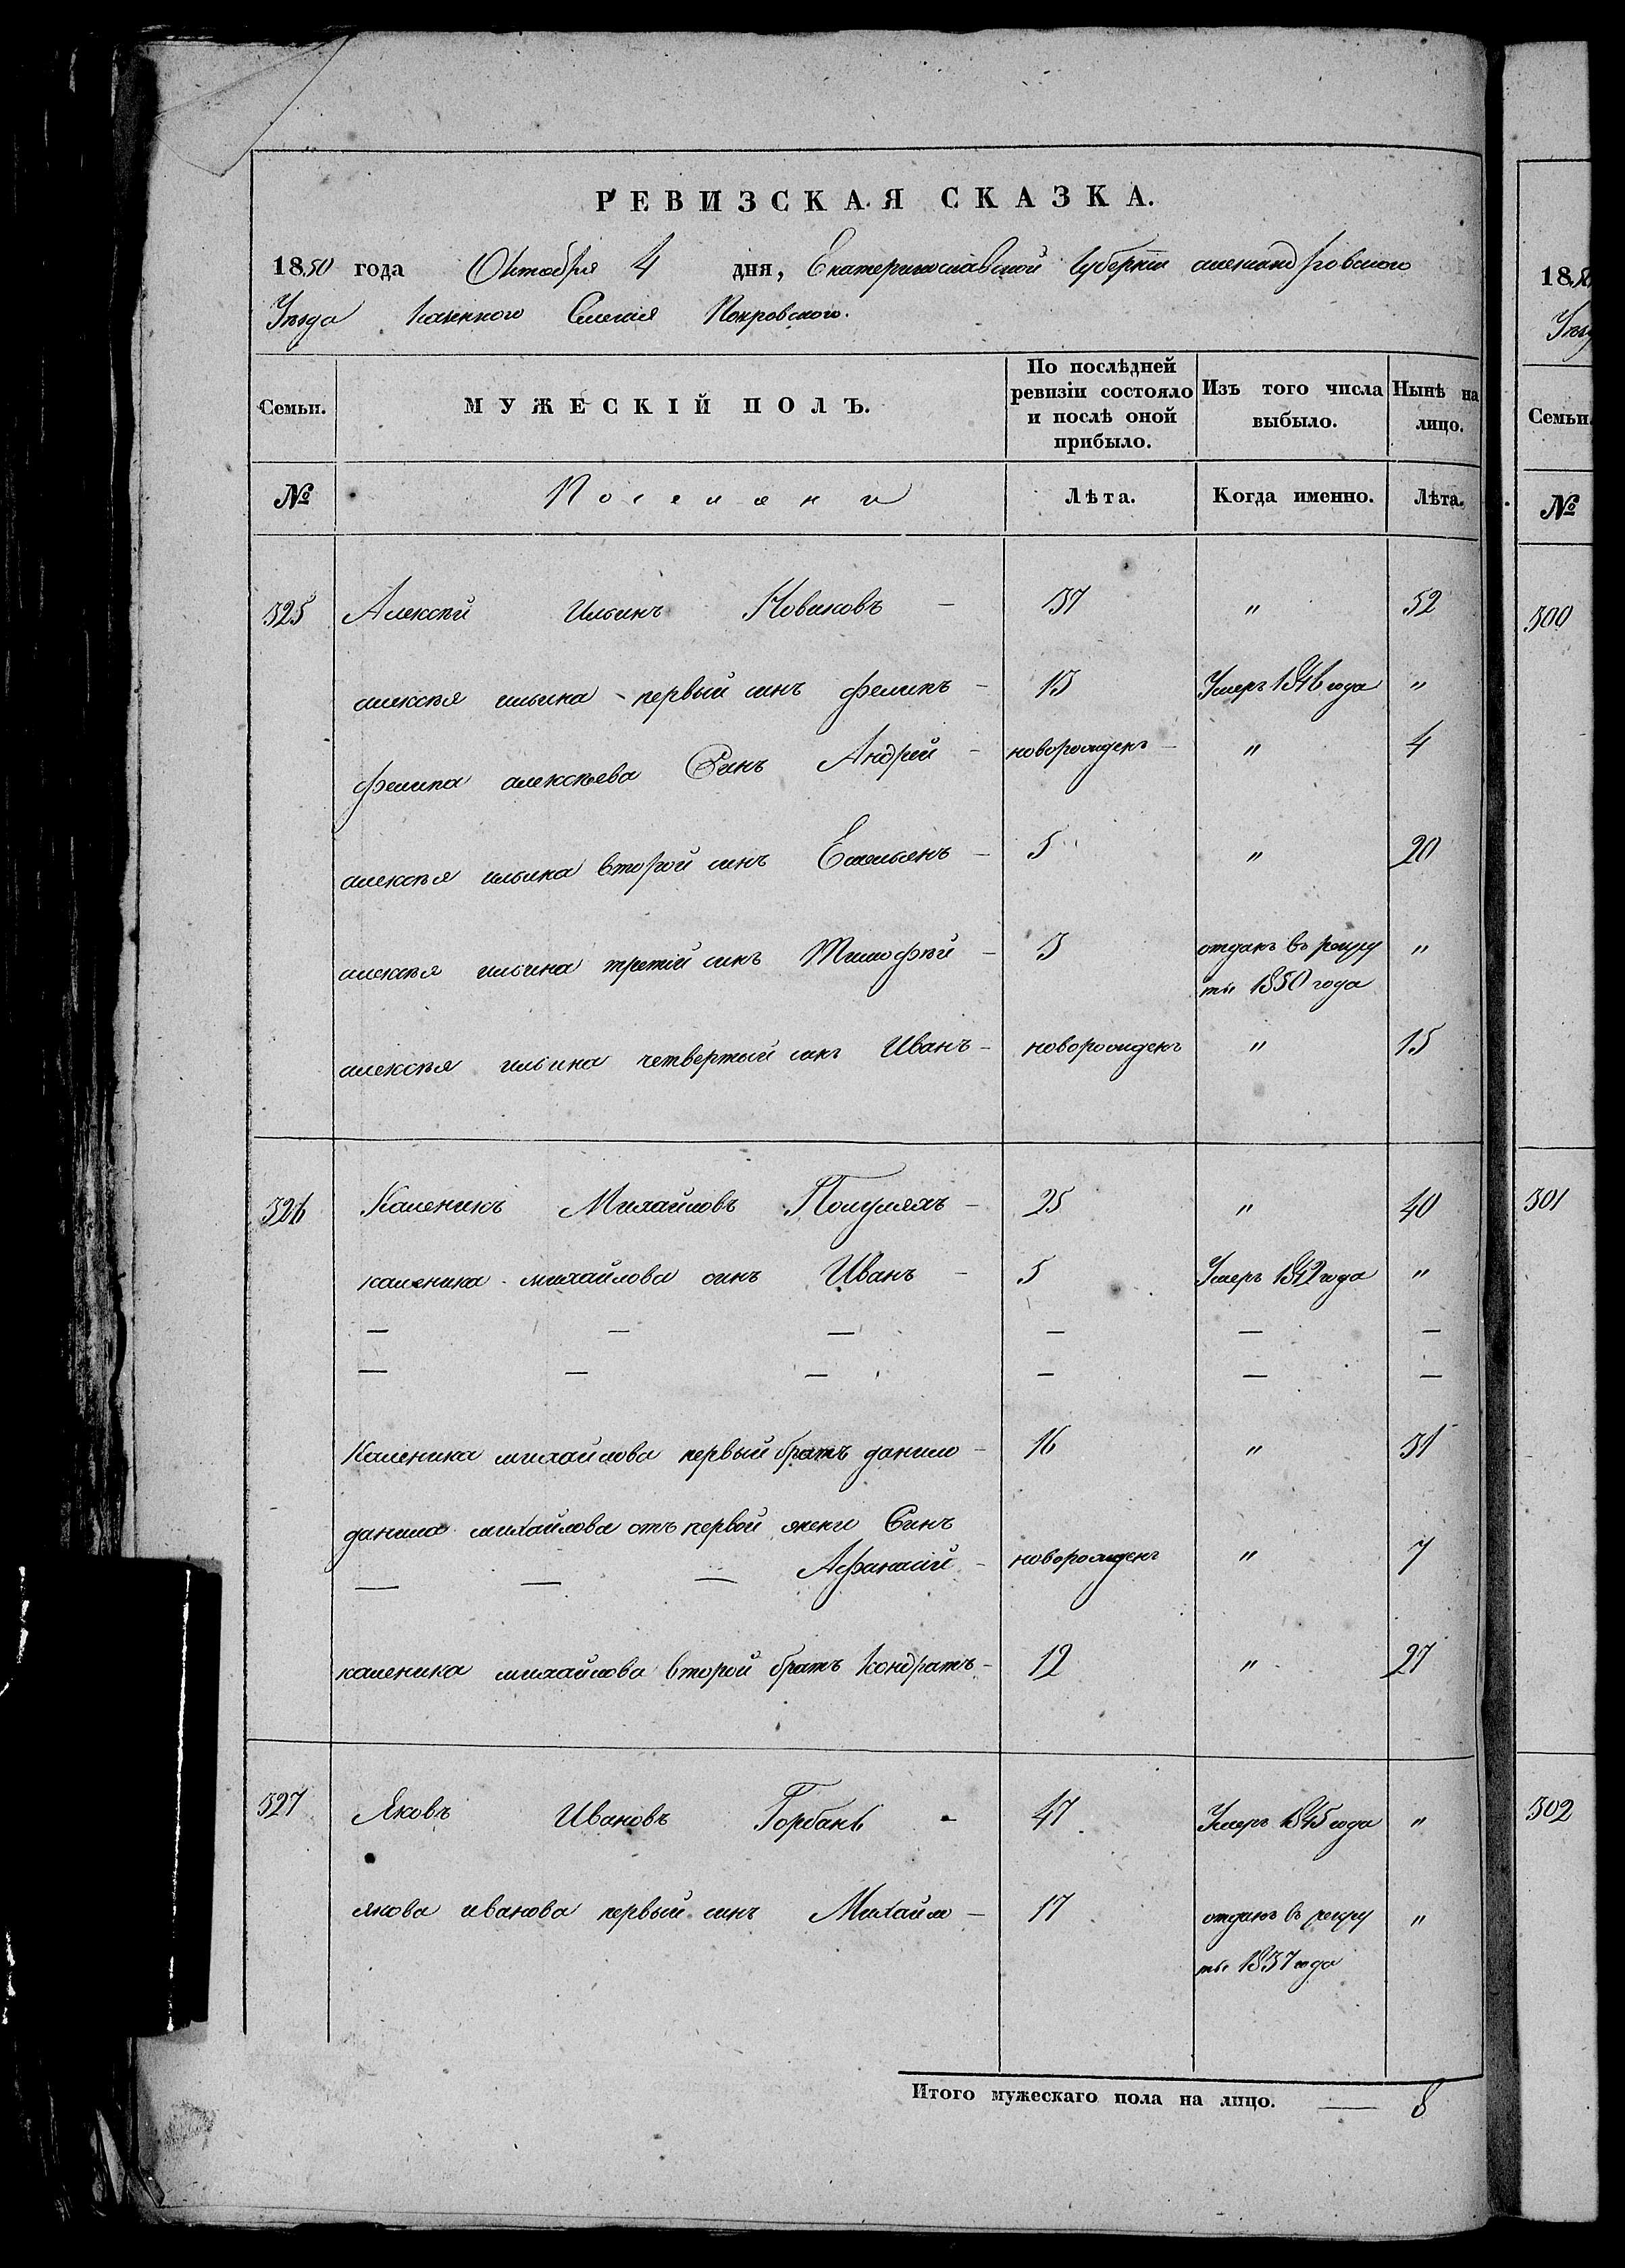 РЕВИЗСКАЯ СКАЗКА.
1850 года Октября 4 дня, Екатеринославской Губернiи александровского
Уѣзда Казенного Селения Покровского.
Семьи. МУЖЕСКІЙ ПОЛЪ. По послѣдней ревизіи состояло и послѣ оной прибыло. Изъ того числа выбыло. Нынѣ на лицо.
№ Поселяни Лѣта. Когда именно. Лѣта.
325 Алексѣй Ильинъ Новиковъ — 37 " 52
алексѣя ильина первый синъ филипъ — 15 Умеръ 1846 года "
филипа алексѣева Синъ Андрей — новорожденъ — " 4
алексѣя ильина второй синъ Емельянъ — 5 " 20
алексѣя ильина третiй синъ Тимофѣй — 3 отданъ въ рекру
ты 1850 года "
алексѣя ильина четвертый синъ Иванъ — новорожденъ " 15
326 Каленикъ Михайловъ Полуляхъ — 25 " 40
каленика михайлова синъ Иванъ — 5 Умеръ 1842 года "
— — — — — —
— — — — — —
Каленика михайлова первый братъ данило — 16 " 31
данила михайлова отъ первой жени Синъ
— — — Афанасiй — новорожденъ " 7
каленика михайлова второй братъ Кондратъ — 12 " 27
327 Яковъ Ивановъ Горбань — 47 Умеръ 1845 года "
якова иванова первый синъ Михайло — 17 отданъ въ рекру
ты 1837 года "
Итого мужескаго пола на лицо. — 8
18
Семьи.
№
300
301
302